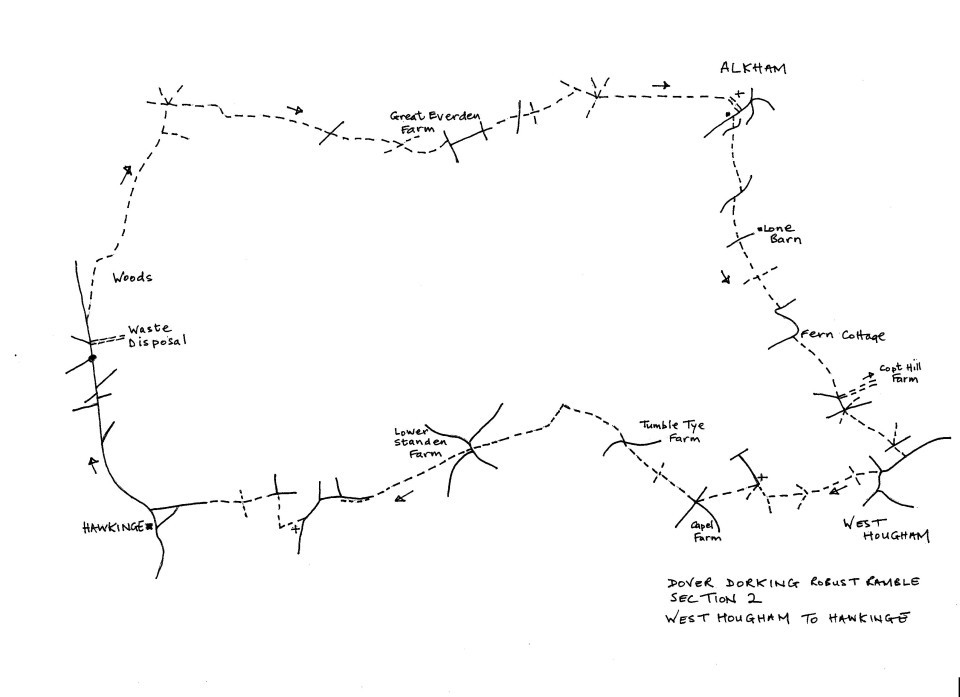 ALKHAM
Great Everden
Farm
Lone
Barn
Woods
Waste
Disposal
Fern Cottage
Copt Hill
Farm
Lower
Standen
Farm
Tumble Tye
Farm
Capel
Farm
HAWKINGE
WEST
HOUGHAM
DOVER DORKING ROBUST RAMBLE
SECTION 2
WEST HOUGHAM TO HAWKINGE